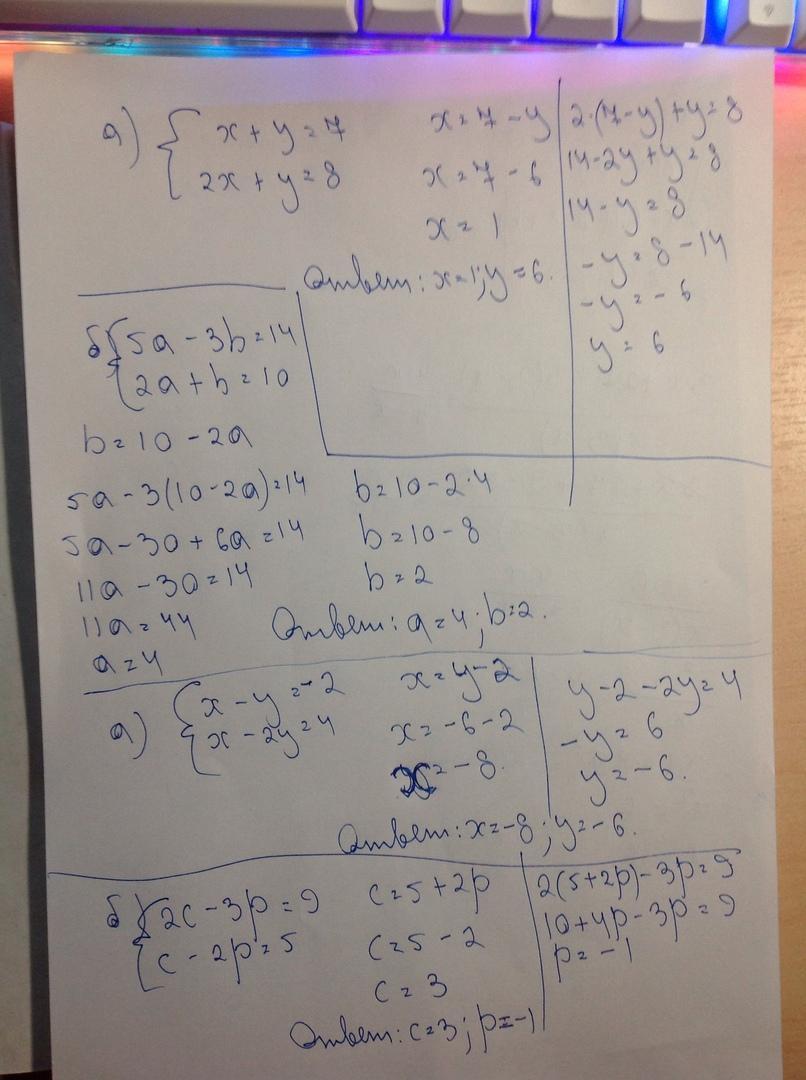 а) { x + y = 7
2x + y = 8
x = 7 - y
x = 7 - 6
x = 1
2·(7-y)+y=8
14-2y+y=8
14-y=8
-y=8-14
-y=-6
y=6
Ответ: x=1; y=6.
б) { 5a - 3b = 14
2a + b = 10
b = 10 - 2a
5a - 3(10-2a)=14
5a - 30 + 6a = 14
11a - 30 = 14
11a = 44
a = 4
b = 10 - 2·4
b = 10 - 8
b = 2
Ответ: a=4; b=2.
а) { x - y = -2
x - 2y = 4
x = y - 2
x = -6 - 2
x = -8.
y - 2 - 2y = 4
-y = 6
y = -6.
Ответ: x=-8; y=-6.
б) { 2c - 3p = 9
c - 2p = 5
c = 5 + 2p
c = 5 - 2
c = 3
2(5+2p)-3p=9
10+4p-3p=9
p = -1
Ответ: c=3; p=-1